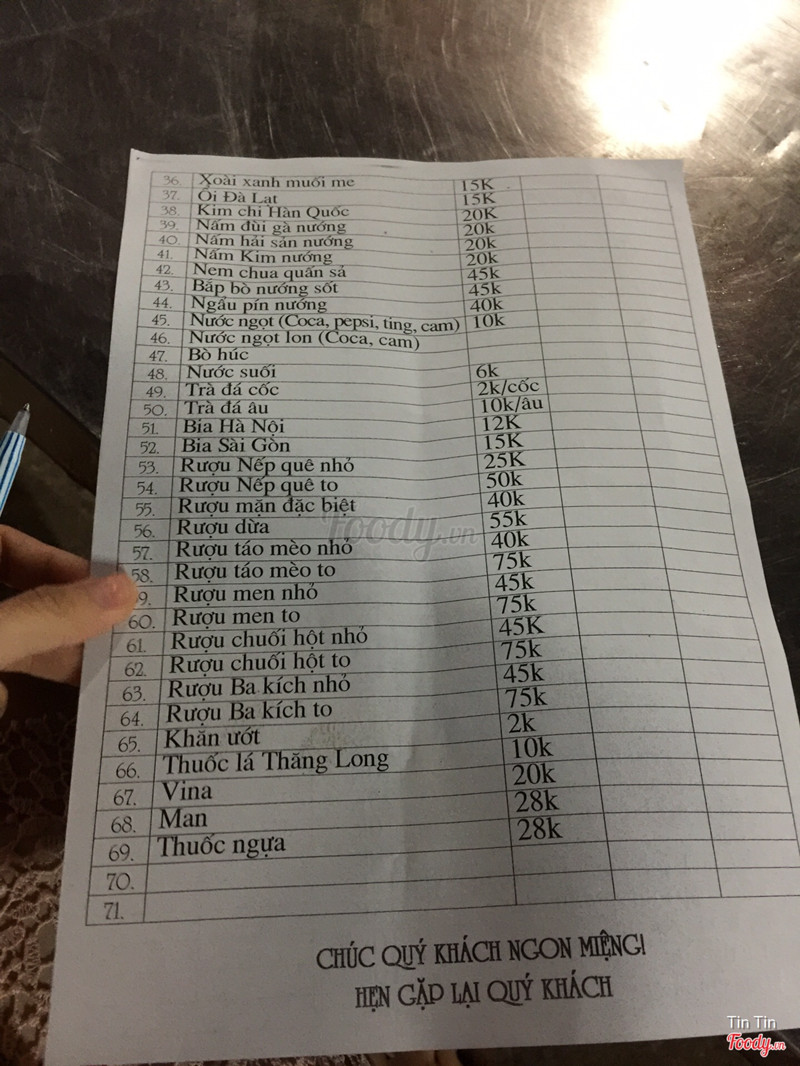 36. Xoài xanh muối me 15K
37. Ổi Đà Lạt 15K
38. Kim chi Hàn Quốc 20K
39. Nấm đùi gà nướng 20k
40. Nấm hải sản nướng 20k
41. Nấm Kim nướng 20k
42. Nem chua quấn sả 45k
43. Bắp bò nướng sốt 45k
44. Ngẩu pín nướng 40k
45. Nước ngọt (Coca, pepsi, ting, cam) 10k
46. Nước ngọt lon (Coca, cam)
47. Bò húc
48. Nước suối 6k
49. Trà đá cốc 2k/cốc
50. Trà đá âu 10k/âu
51. Bia Hà Nội 12K
52. Bia Sài Gòn 15K
53. Rượu Nếp quê nhỏ 25K
54. Rượu Nếp quê to 50k
55. Rượu mặn đặc biệt 40k
56. Rượu dừa 55k
57. Rượu táo mèo nhỏ 40k
58. Rượu táo mèo to 75k
9. Rượu men nhỏ 45k
60. Rượu men to 75k
61. Rượu chuối hột nhỏ 45K
62. Rượu chuối hột to 75k
63. Rượu Ba kích nhỏ 45k
64. Rượu Ba kích to 75k
65. Khăn ướt 2k
66. Thuốc lá Thăng Long 10k
67. Vina 20k
68. Man 28k
69. Thuốc ngựa 28k
70.
71.
CHÚC QUÝ KHÁCH NGON MIỆNG!
HẸN GẶP LẠI QUÝ KHÁCH
Foody.vn
Tin Tin
Foody.vn